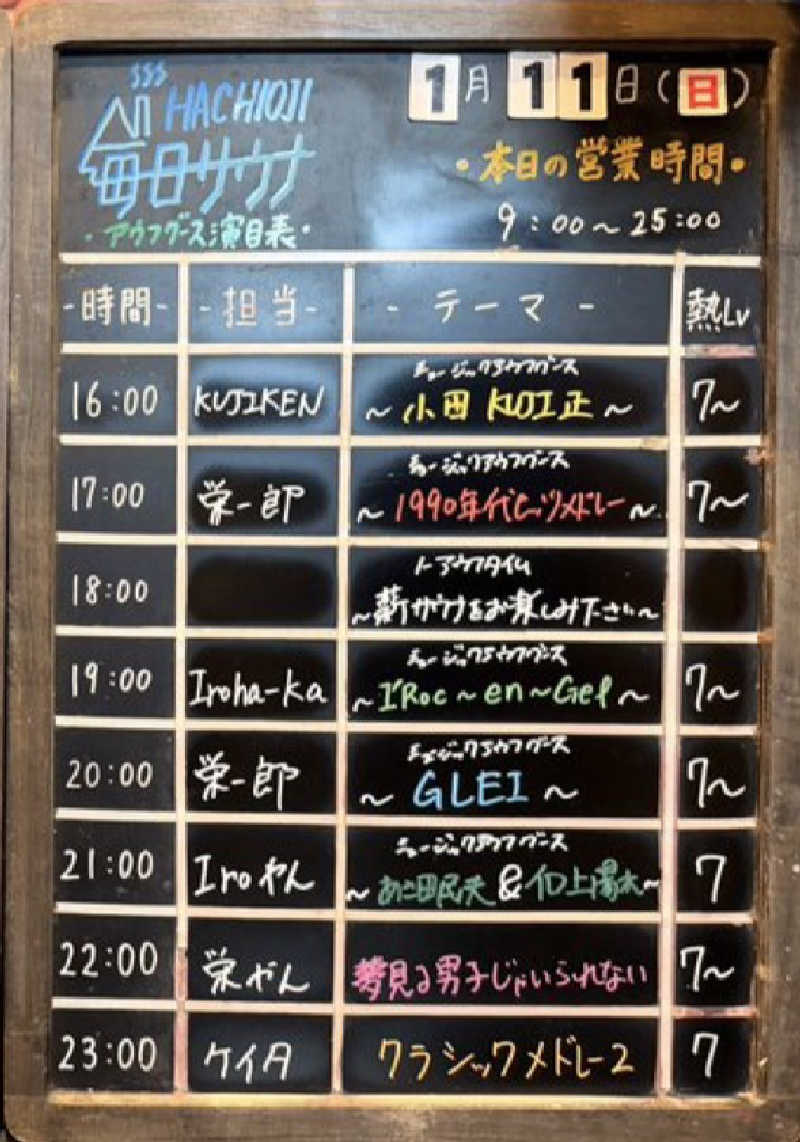 HACHIOJI
毎日サウナ
・アウフグース演目表・
1月11日(日)
・本日の営業時間・
9:00〜25:00
-時間- -担当- -テーマ- 熱Lv
16:00 KUJIKEN ミュージックアウフグース 7〜
〜小田KUJI正〜
17:00 栄一郎 ミュージックアウフグース 7〜
〜1990年代ヒッツメドレー〜
18:00 ノーアウフタイム
〜薪サウナをお楽しみ下さい〜
19:00 Iroha-ka ミュージックアウフグース 7〜
〜I'Roc〜en〜Gel〜
20:00 栄一郎 ミュージックアウフグース 7〜
〜GLEI〜
21:00 Iroやん ミュージックアウフグース 7
〜&イロ上陽水〜
22:00 栄やん 夢見る男子じゃいられない 7〜
23:00 ケイタ クラシックメドレー2 7